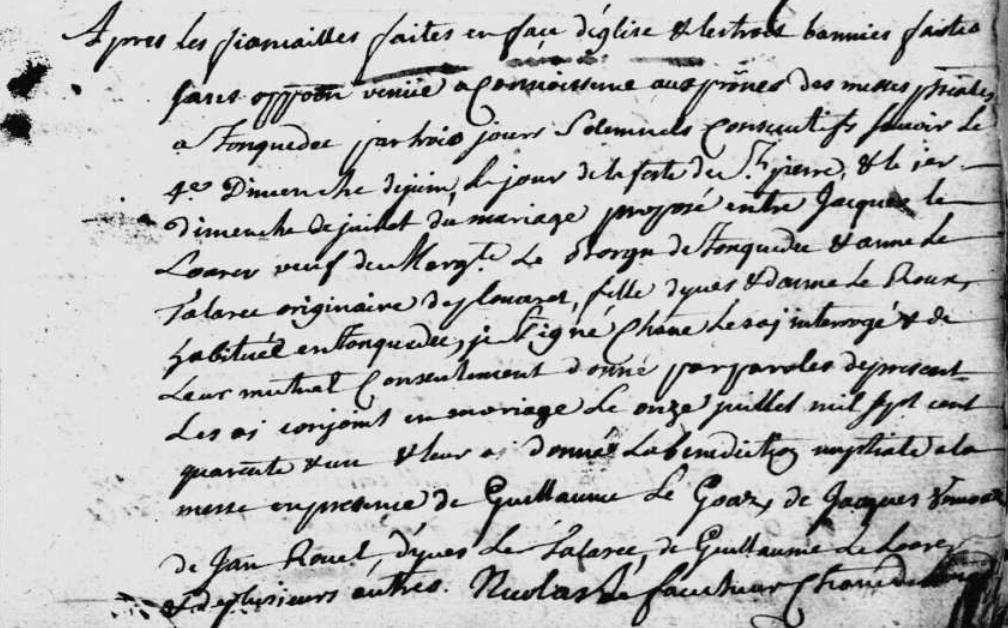 Apres les fiancailles faites en face d'église & les trois bannies faittes
sans oppōōn venüe a Connoissence aux prônes des messes pñales
a Tonquedec par trois jours Solemnels Consecutifs savoir Le
4e Dimenche de juin, Le jour de la feste de St pierre, & le 1er
dimenche de juillet du mariage proposé entre Jacques le
Loarer veuf de Margte Le Borgn de Tonquedec & anne Le
originaire de plouaret, fille d'yves & d'anne Le Roux,
habituée en Tonquedec, je Sigñé Chane Les ai interrogé & de
Leur mutuel Consentement donné par paroles de present
Les ai conjoint en mariage Le onze juillet mil sept cent
quarente & un & leur ai donné La benediction nuptiale a la
messe en presence de Guillaume Le Goaz, de Jacques
de Jan Rouel, d'yves Le de Guillaume Le Loarer
& de plusieurs autres. Nicolas Le faucheur Chane